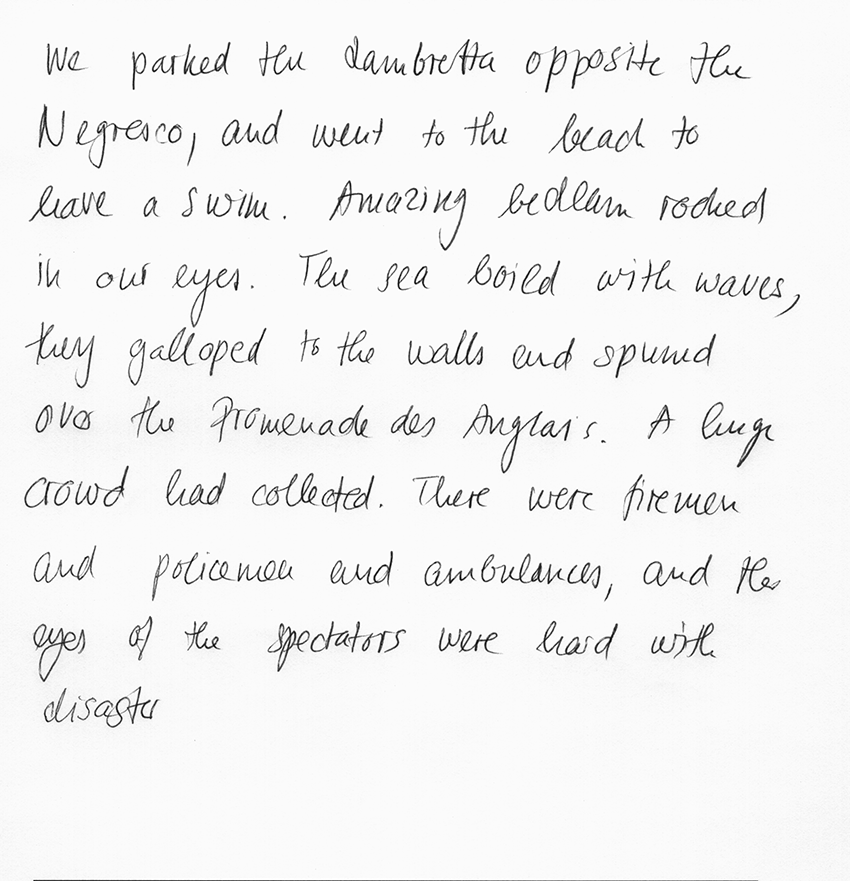 We parked the Lambretta opposite the
Negresco, and went to the beach to
have a swim. Amazing bedlam rocked
in our eyes. The sea boild with waves,
they galloped to the walls and spumed
over the Promenade des Anglais. A huge
crowd had collected. There were firemen
and policemen and ambulances, and the
eyes of the spectators were hard with
disaster